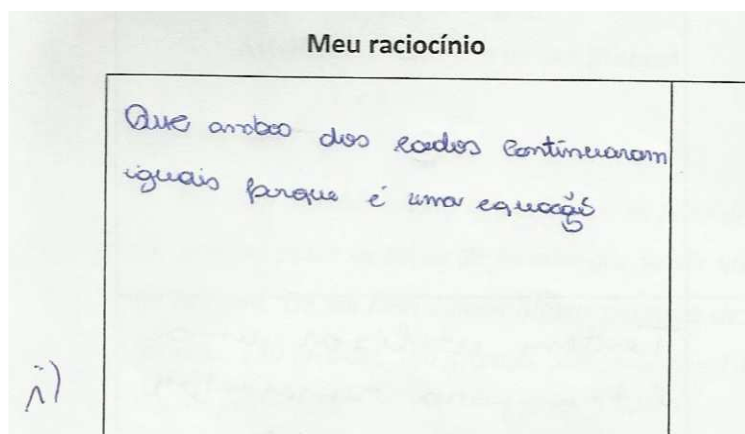 Meu raciocínio
Que ambos dos lados continuaram
iguais porque é uma equação
i)